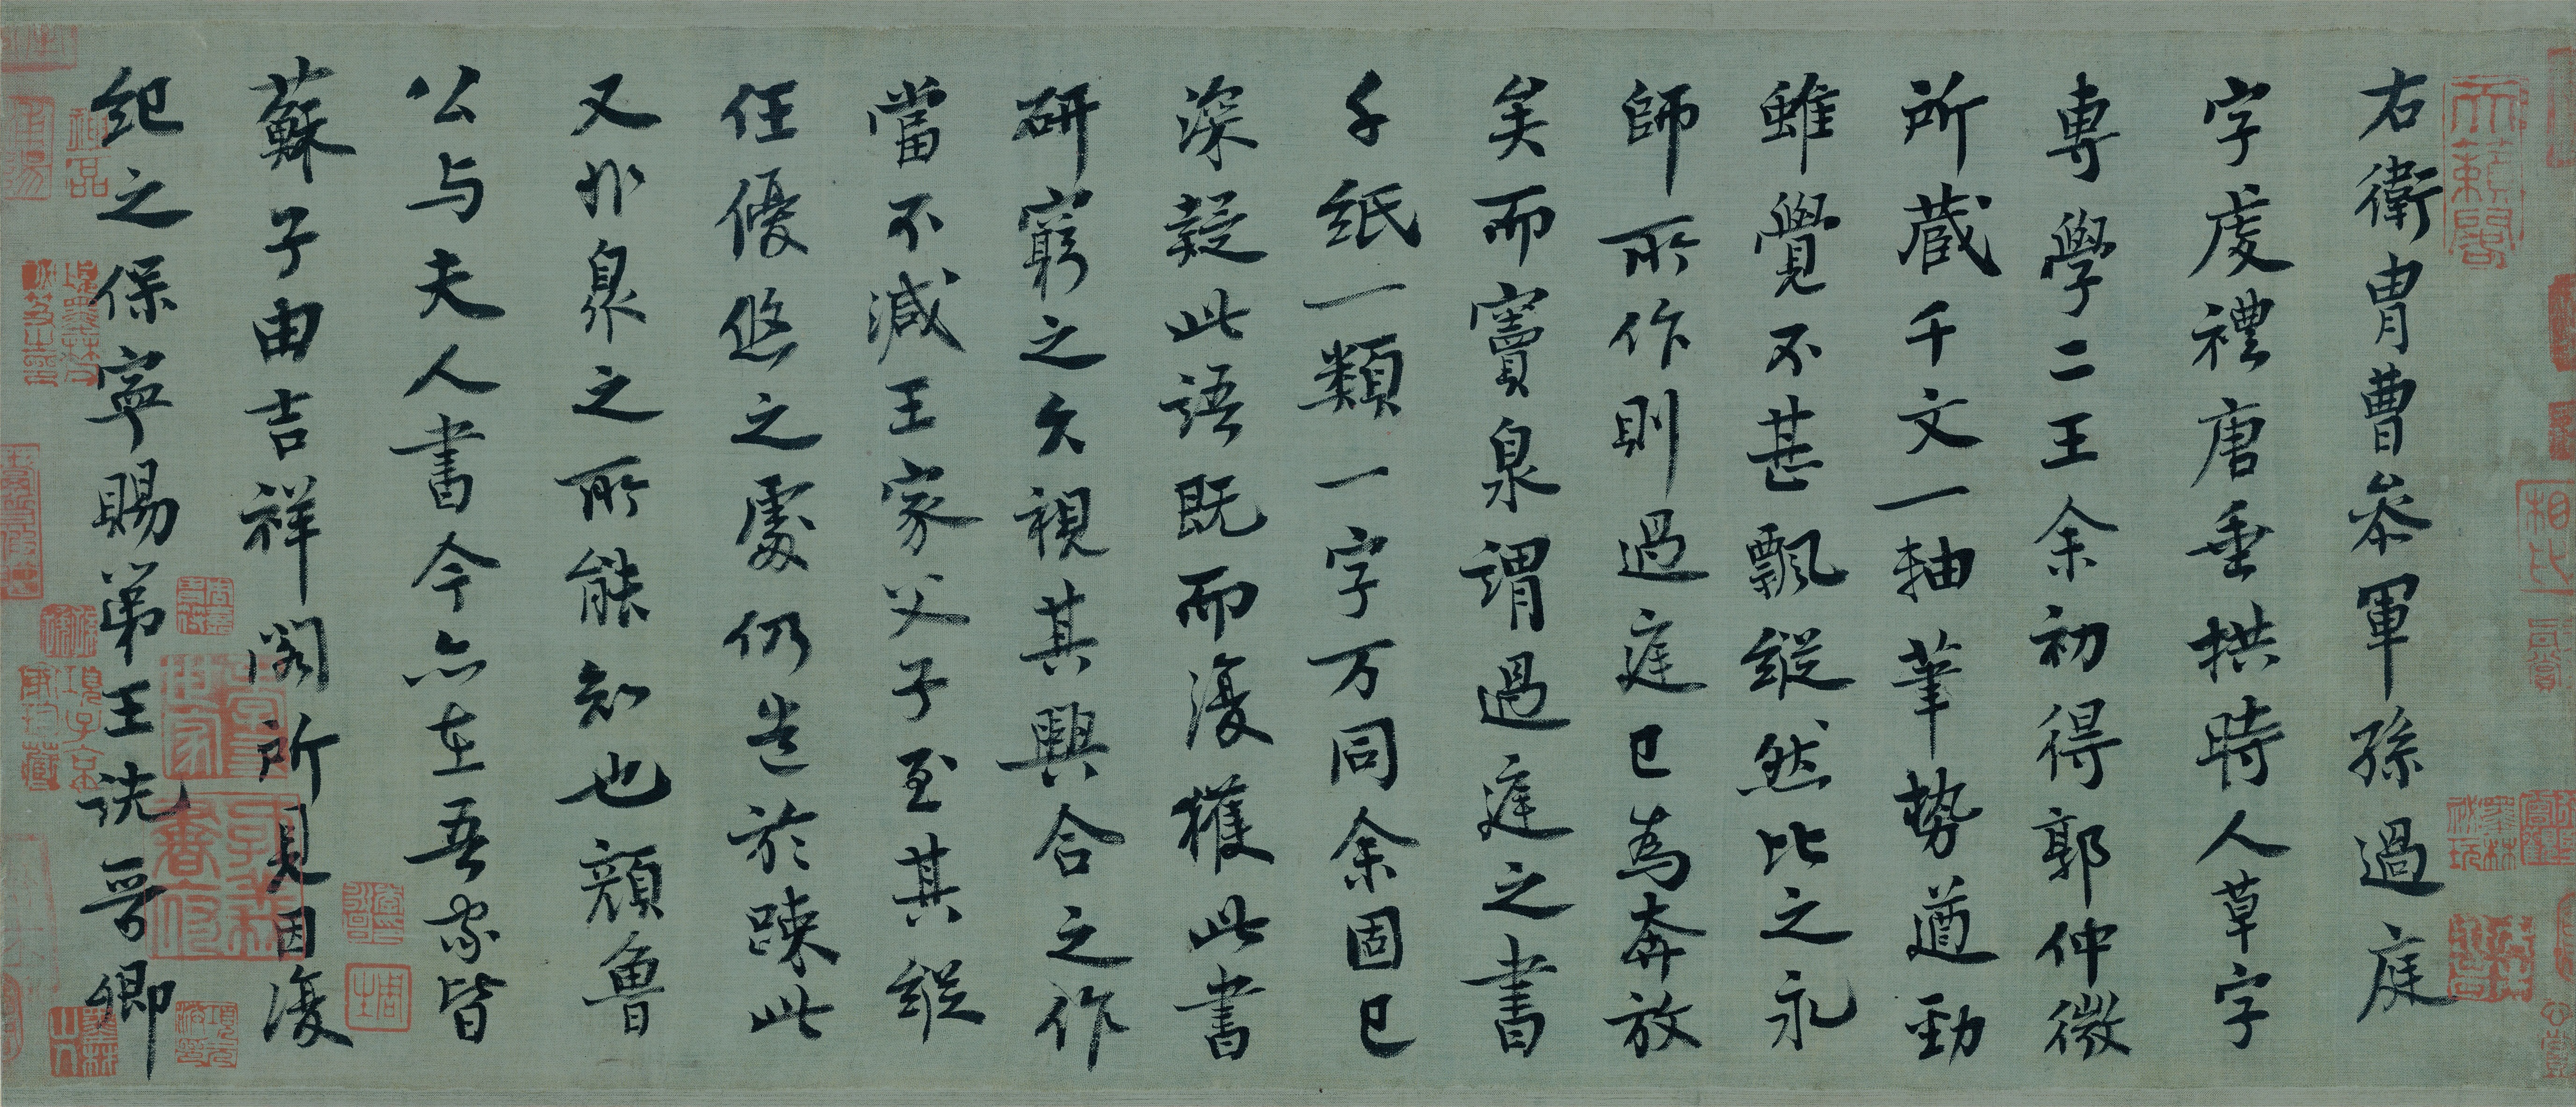 右衛胄曹參軍孫過庭
字虔禮唐垂拱時人草字
專學二王余初得郭仲微
所藏千文一軸筆勢遒勁
雖覺不甚飄縱然比之永
師所作則過庭已為奔放
矣而竇泉謂過庭之書
千紙一類一字万同余固已
深疑此語既而復獲此書
研窮之久視其興合之作
當不減王家父子至其縱
任優悠之處仍造於疎此
又非泉之所能知也顏魯
公与夫人書今亦在吾家皆
蘇子由吉祥閣所見因復
紀之保寧賜第王詵晉卿